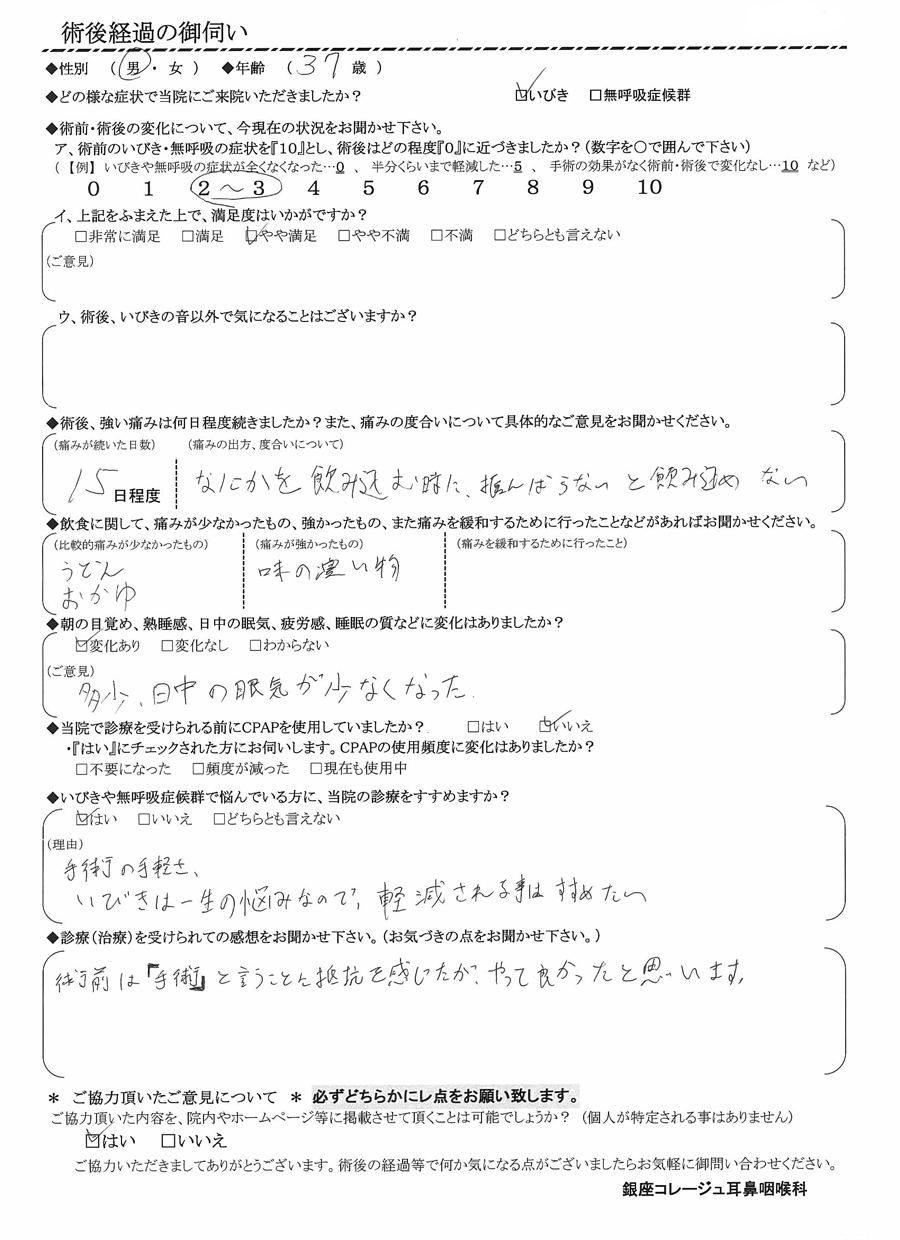 術後経過の御伺い
◆性別 (男・ 女 ) ◆年齢 (37 歳 )
◆どの様な症状で当院にご来院いただきましたか? ☑いびき □無呼吸症候群
◆術前・術後の変化について、今現在の状況をお聞かせ下さい。
ア、術前のいびき・無呼吸の症状を『10』とし、術後はどの程度『0』に近づきましたか?(数字を○で囲んで下さい)
(【例】いびきや無呼吸の症状が全くなくなった…0 、 半分くらいまで軽減した…5 、 手術の効果がなく術前・術後で変化なし…10 など)
0 1 2 ~ 3 4 5 6 7 8 9 10
イ、上記をふまえた上で、満足度はいかがですか?
□非常に満足 □満足 ☑やや満足 □やや不満 □不満 □どちらとも言えない
(ご意見)
ウ、術後、いびきの音以外で気になることはございますか?
◆術後、強い痛みは何日程度続きましたか?また、痛みの度合いについて具体的なご意見をお聞かせください。
(痛みが続いた日数) (痛みの出方、度合いについて)
15 日程度 なにかを飲み込む時に、 ばらないと飲み込めない
◆飲食に関して、痛みが少なかったもの、強かったもの、また痛みを緩和するために行ったことなどがあればお聞かせください。
(比較的痛みが少なかったもの) (痛みが強かったもの) (痛みを緩和するために行ったこと)
うどん 味の濃い物
おかゆ
◆朝の目覚め、熟睡感、日中の眠気、疲労感、睡眠の質などに変化はありましたか?
☑変化あり □変化なし □わからない
(ご意見)
多少、日中の眠気が少なくなった.
◆当院で診療を受けられる前にCPAPを使用していましたか? □はい ☑いいえ
・『はい』にチェックされた方にお伺いします。CPAPの使用頻度に変化はありましたか?
□不要になった □頻度が減った □現在も使用中
◆いびきや無呼吸症候群で悩んでいる方に、当院の診療をすすめますか?
☑はい □いいえ □どちらとも言えない
(理由)
手術の手軽さ、
いびきは一生の悩みなので、軽減される事はすすめたい
◆診療(治療)を受けられての感想をお聞かせ下さい。(お気づきの点をお聞かせ下さい。)
術前は『手術』と言うことに抵抗を感じたが、やって良かったと思います。
* ご協力頂いたご意見について * 必ずどちらかにレ点をお願い致します。
ご協力頂いた内容を、院内やホームページ等に掲載させて頂くことは可能でしょうか? (個人が特定される事はありません)
☑はい □いいえ
ご協力いただきましてありがとうございます。術後の経過等で何か気になる点がございましたらお気軽に御問い合わせください。
銀座コレージュ耳鼻咽喉科